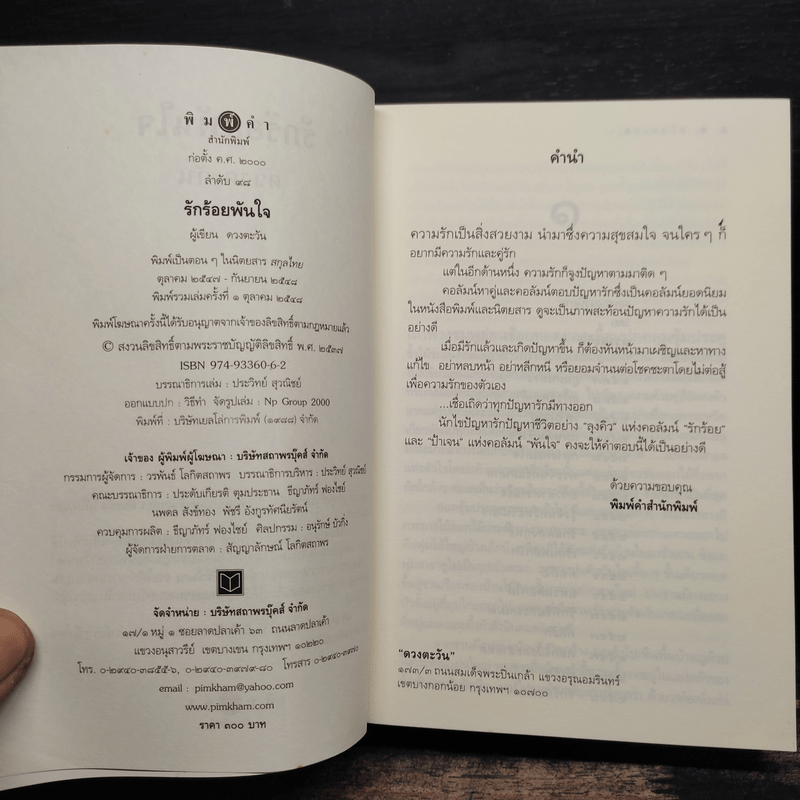 พิมพ์คำ
สำนักพิมพ์
ก่อตั้ง ค.ศ. ๒๐๐๐
ลำดับ ๙๘
รักร้อยพันใจ
ผู้เขียน ดวงตะวัน
พิมพ์เป็นตอน ๆ ในนิตยสาร สกุลไทย
ตุลาคม ๒๕๔๗ - กันยายน ๒๕๔๘
พิมพ์รวมเล่มครั้งที่ ๑ ตุลาคม ๒๕๔๘
พิมพ์โฆษณาครั้งนี้ได้รับอนุญาตจากเจ้าของลิขสิทธิ์ตามกฎหมายแล้ว
© สงวนลิขสิทธิ์ตามพระราชบัญญัติลิขสิทธิ์ พ.ศ. ๒๕๓๗
ISBN 974-93360-6-2
บรรณาธิการเล่ม : ประวิทย์ สุวณิชย์
ออกแบบปก : วิธีทำ จัดรูปเล่ม : Np Group 2000
พิมพ์ที่ : บริษัทเยลโล่การพิมพ์ (๑๙๘๘) จำกัด
เจ้าของ ผู้พิมพ์ผู้โฆษณา : บริษัทสถาพรบุ๊คส์ จำกัด
กรรมการผู้จัดการ : วรพันธ์ โลกิตสถาพร บรรณาธิการบริหาร : ประวิทย์ สุวณิชย์
คณะบรรณาธิการ : ประดับเกียรติ ตุมประธาน ธีญาภัทร์ ฟองไชย์
นพดล สังข์ทอง พัชรี อังกูรทัศนียรัตน์
ควบคุมการผลิต : ธีญาภัทร์ ฟองไชย์ ศิลปกรรม : อนุรักษ์ บัวกิ่ง
ผู้จัดการฝ่ายการตลาด : สัญญาลักษณ์ โลกิตสถาพร
จัดจำหน่าย : บริษัทสถาพรบุ๊คส์ จำกัด
๑๗/๑ หมู่ ๑ ซอยลาดปลาเค้า ๖๓ ถนนลาดปลาเค้า
แขวงอนุสาวรีย์ เขตบางเขน กรุงเทพฯ ๑๐๒๒๐
โทร. ๐-๒๙๔๐-๓๘๕๕-๖, ๐-๒๙๔๐-๓๙๗๙-๘๐ โทรสาร ๐-๒๙๔๐-๓๙๗๐
email : pimkham@yahoo.com
www.pimkham.com
ราคา ๓๐๐ บาท
คำนำ
ความรักเป็นสิ่งสวยงาม นำมาซึ่งความสุขสมใจ จนใคร ๆ ก็
อยากมีความรักและคู่รัก
แต่ในอีกด้านหนึ่ง ความรักก็จูงปัญหาตามมาติด ๆ
คอลัมน์หาคู่และคอลัมน์ตอบปัญหารักซึ่งเป็นคอลัมน์ยอดนิยม
ในหนังสือพิมพ์และนิตยสาร ดูจะเป็นภาพสะท้อนปัญหาความรักได้เป็น
อย่างดี
เมื่อมีรักแล้วและเกิดปัญหาขึ้น ก็ต้องหันหน้ามาเผชิญและหาทาง
แก้ไข อย่าหลบหน้า อย่าหลีกหนี หรือยอมจำนนต่อโชคชะตาโดยไม่ต่อสู้
เพื่อความรักของตัวเอง
...เชื่อเถิดว่าทุกปัญหารักมีทางออก
นักไขปัญหารักปัญหาชีวิตอย่าง “ลุงคิว” แห่งคอลัมน์ “รักร้อย”
และ “ป้าเจน” แห่งคอลัมน์ “พันใจ” คงจะให้คำตอบนี้ได้เป็นอย่างดี
ด้วยความขอบคุณ
พิมพ์คำสำนักพิมพ์
“ดวงตะวัน”
๑๗๓/๓ ถนนสมเด็จพระปิ่นเกล้า แขวงอรุณอมรินทร์
เขตบางกอกน้อย กรุงเทพฯ ๑๐๗๐๐